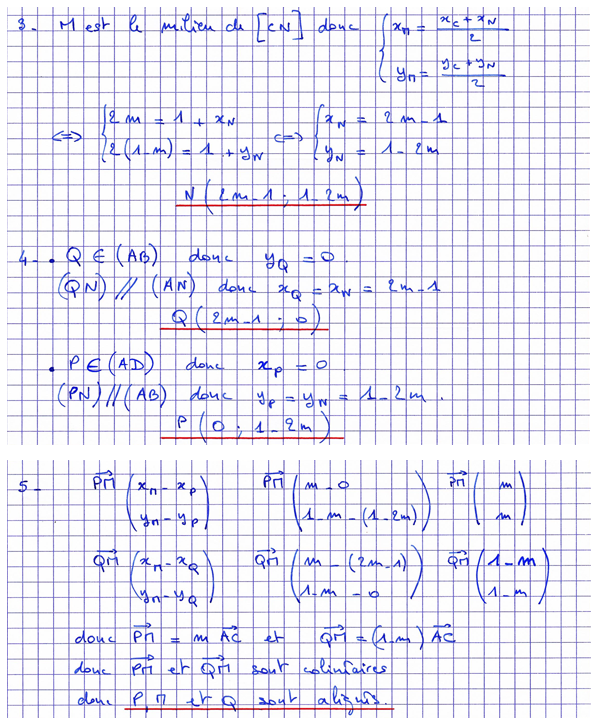 3- M est le milieu de [CN] donc { x_M = (x_C + x_N)/2
y_M = (y_C + y_N)/2
<=> { 2m = 1 + x_N <=> { x_N = 2m - 1
2(1-m) = 1 + y_N y_N = 1 - 2m
N(2m-1 ; 1-2m)
4- • Q ∈ (AB) donc y_Q = 0.
(QN) // (AN) donc x_Q = x_N = 2m-1
Q(2m-1 ; 0)
• P ∈ (AD) donc x_P = 0
(PN) // (AB) donc y_P = y_N = 1-2m.
P(0 ; 1-2m)
5- PM→ (x_M - x_P PM→ (m - 0 PM→ (m
y_M - y_P) 1-m-(1-2m)) m)
QM→ (x_M - x_Q QM→ (m - (2m-1) QM→ (1-m
y_M - y_Q) 1-m - 0) 1-m)
donc PM→ = m AC→ et QM→ = (1-m) AC→
donc PM→ et QM→ sont colinéaires
donc P, M et Q sont alignés.